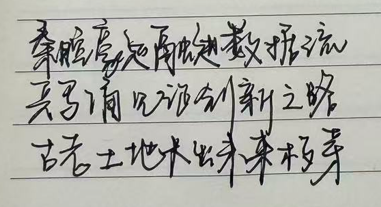 秦腔高亢融进数据流
兵马俑见证创新之路
古老土地长出未来枝芽